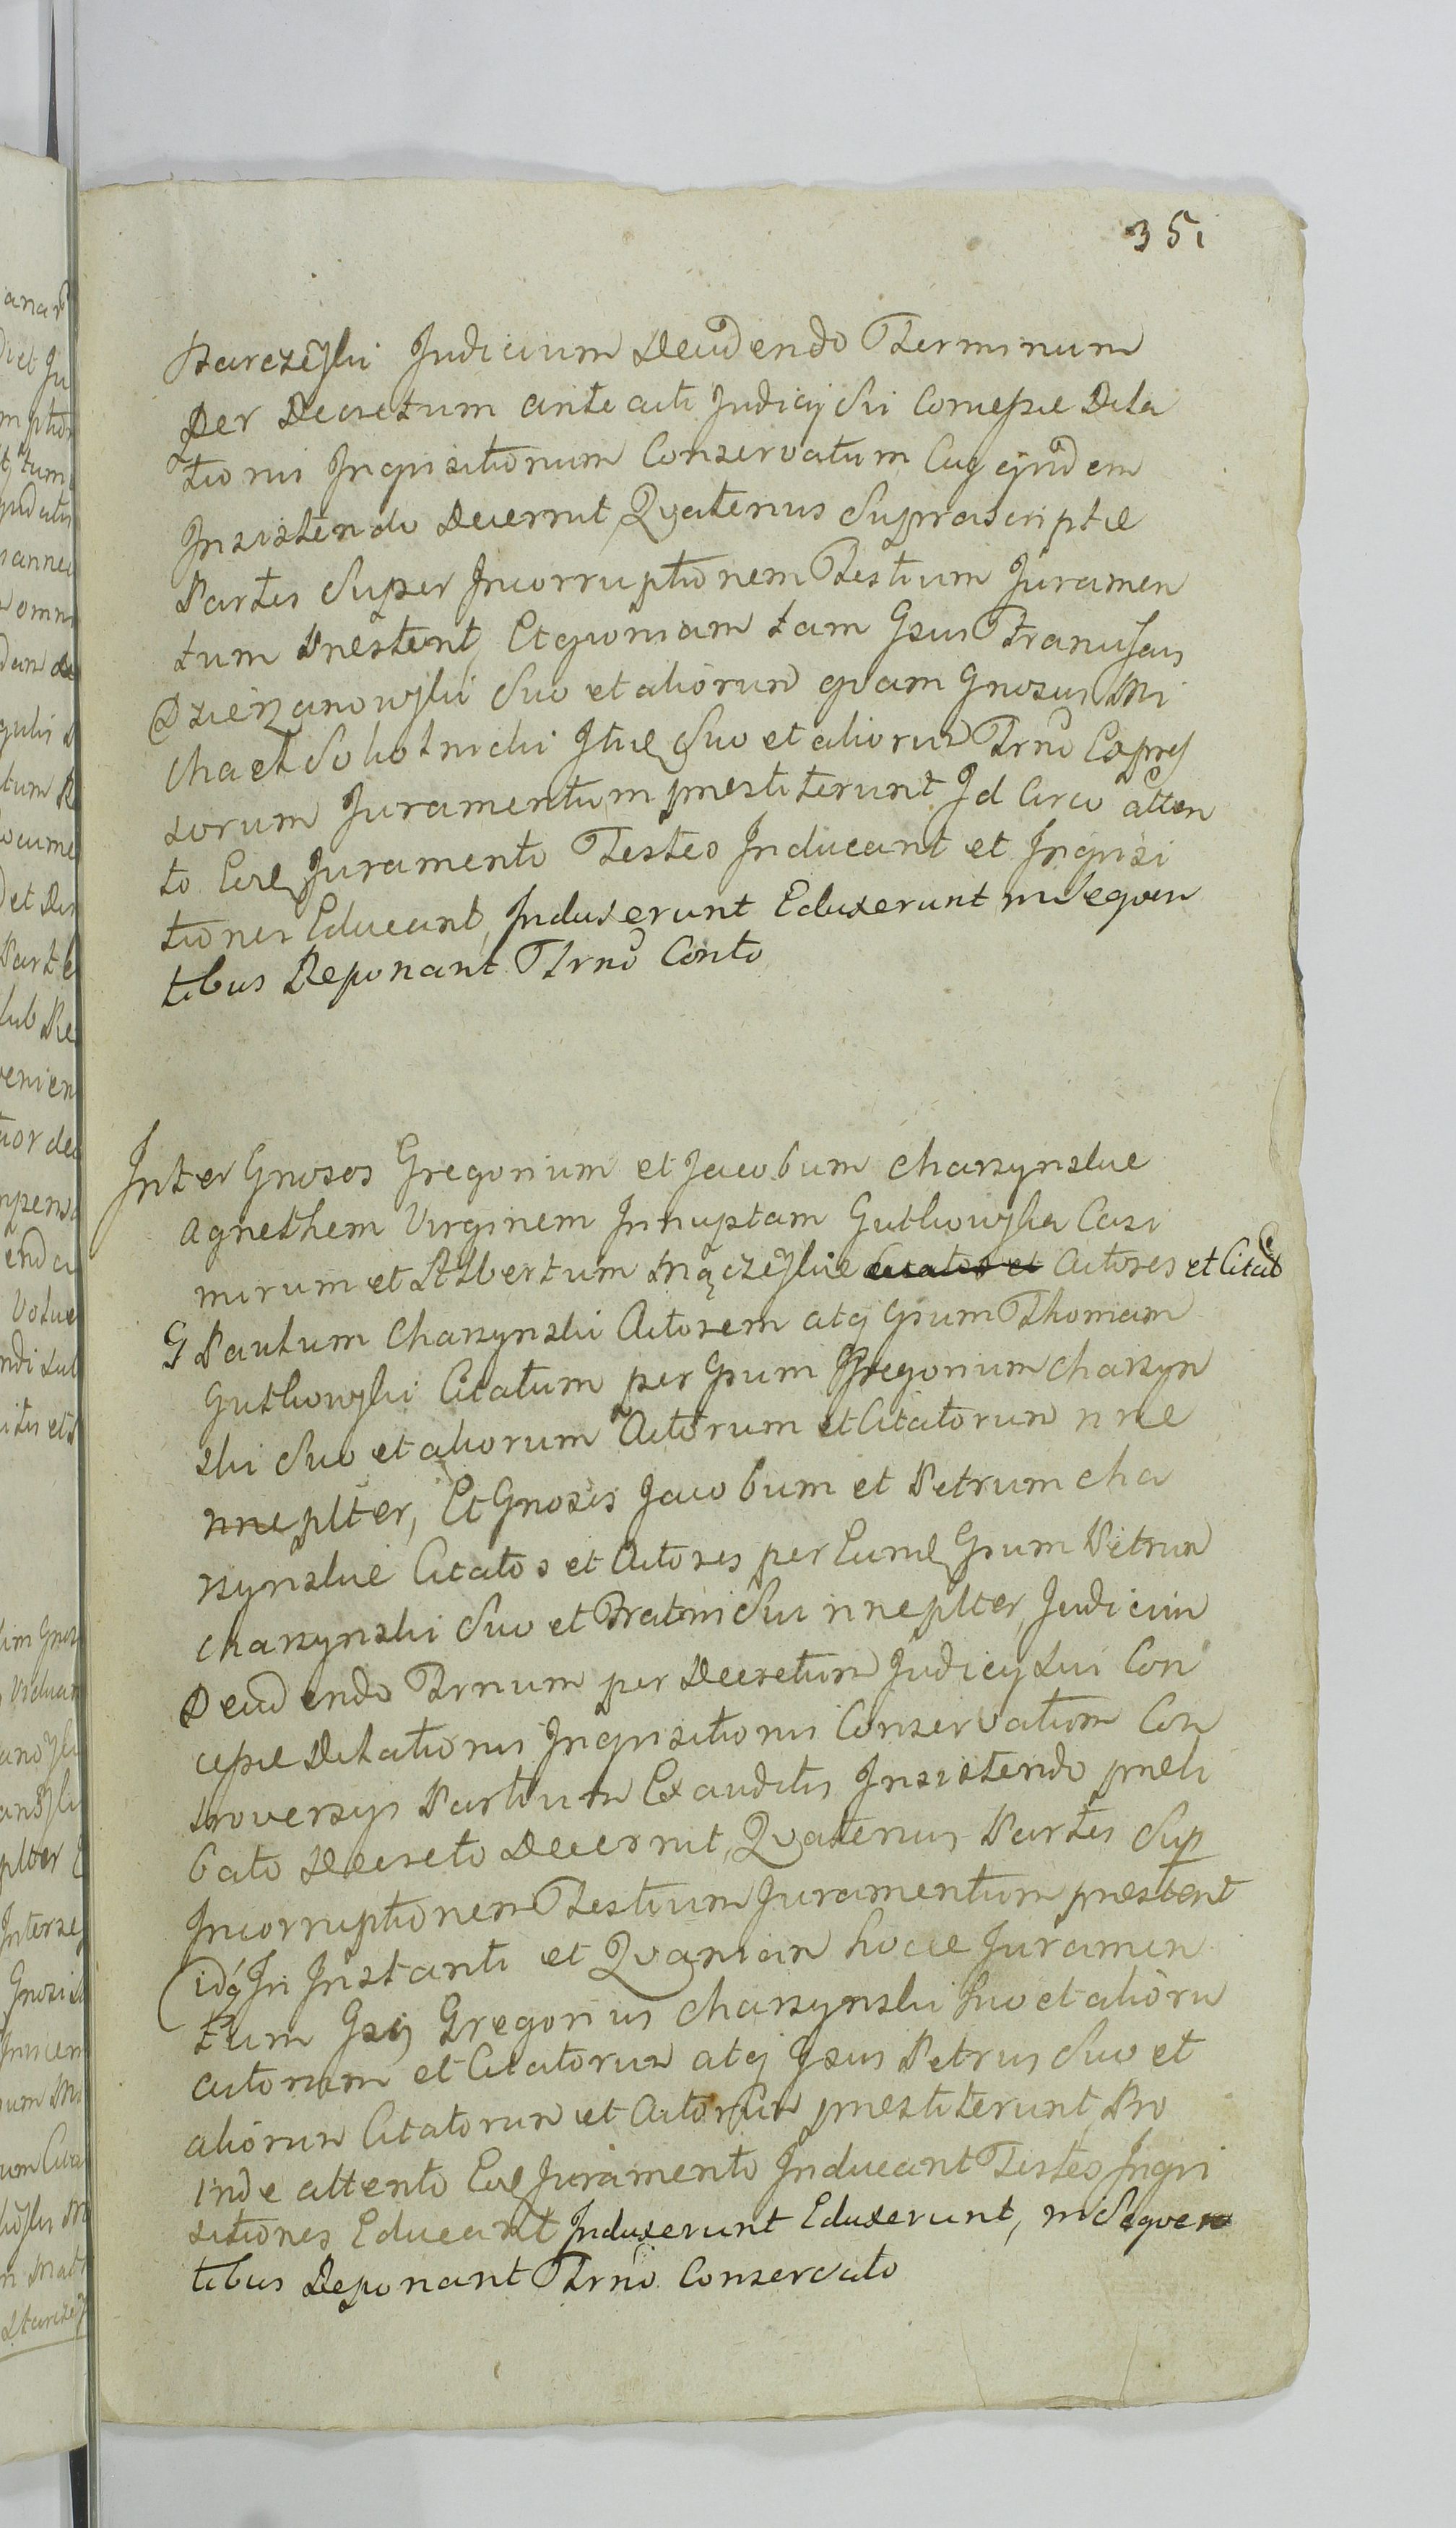 351
Starczeÿski Judicium Decidendo Terminum
Per Decretum ante acti Judicij Sui Concessae Dila
tionis Inquisitionum Conservatum Eidem
Insistendo Decernit, Quatenus Suprascriptae
Partes Super Incorruptionem Testium Juramen
tum Praestent, Et quoniam tam Gsus Franciscus
Dzierzanowski Suo et aliorum quam Gnosus Mi
chael Sokolnicki Itae Suo et aliorum Trno Expres
sorum Juramentum praestiterunt Id Circo atten
to Eorum Juramento Testes Inducant et Inquisi
tiones Educant, Induxerunt Eduxerunt in Sequen
tibus Deponant Trno Conto
Inter Gnosos Gregorium et Jacobum Charzynskie
Agnethem Virginem Innuptam Gutkowska Casi
mirum et Albertum Mączeÿskie Citatos et Actores et Citat
G Paulum Charzynski Actorem atq Gsum Thomam
Gutkowski Citatum per Gsum Gregorium Charzyn
ski Suo et aliorum Actorum et Citatorum nne
nne plter, Et Gnosos Jacobum et Petrum Cha
rzynskie Citatos et Actores per Eunde Gsum Petrum
Charzynski Suo et Fratris Sui nne plter, Judicium
Decidendo Trnum per Decretum Judicij Sui Con
cessae Dilationis Inquisitionis Conservatum Con
troversijs Partium Exauditis Insistendo praeli
bato Decreto Decernit, Quatenus Partes Sup
Incorruptionem Testium Juramentum praestent
idq In Instanti et Quoniam hocce Juramen
tum Gsus Gregorius Charzynski Suo et alioru
Actorum et Citatorum atq Gsus Petrus Suo et
aliorum Citatorum et Actorum praestiterunt, Pro
inde attento Eor Juramento Inducant Testes Inqui
sitiones Educant Induxerunt Eduxerunt, in Sequen
tibus Deponant Trno Conservato